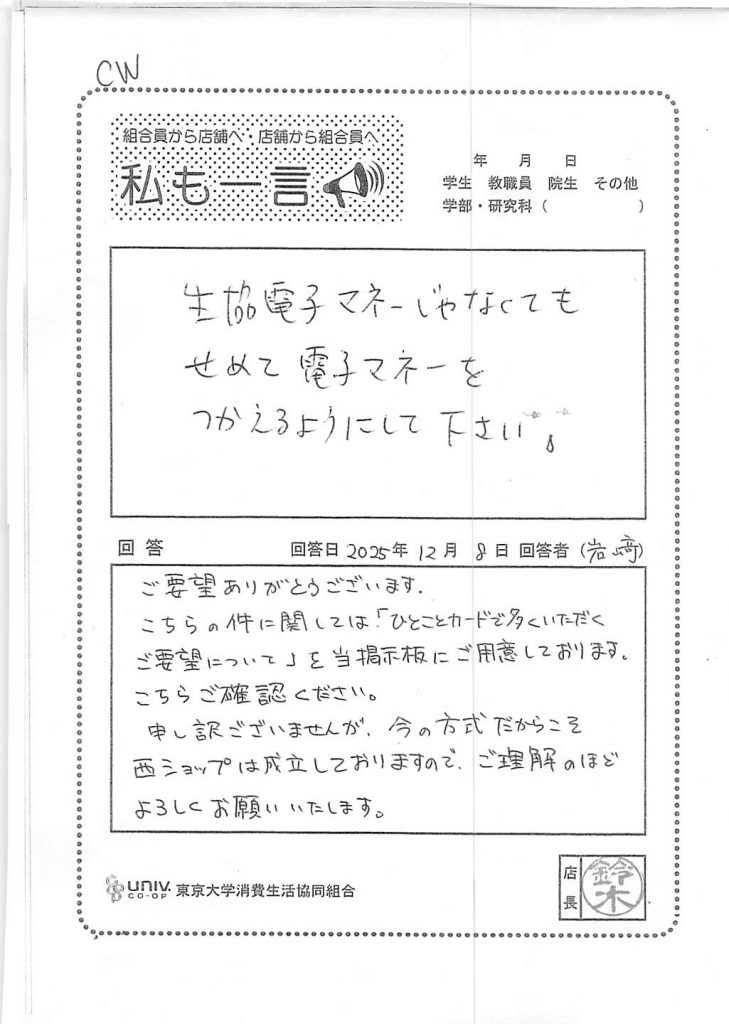 CW
組合員から店舗へ・店舗から組合員へ
私も一言
年 月 日
学生 教職員 院生 その他
学部・研究科( )
生協電子マネーじゃなくても
せめて電子マネーを
つかえるようにして下さい。
回答 回答日2025年12月8日 回答者(岩﨑)
ご要望ありがとうございます.
こちらの件に関しては「ひとことカードで多くいただく
ご要望について」を当掲示板にご用意しております。
こちらご確認ください。
申し訳ございませんが、今の方式だからこそ
西ショップは成立しておりますので、ご理解のほど
よろしくお願いいたします。
UNIV. CO-OP 東京大学消費生活協同組合
店長 鈴木